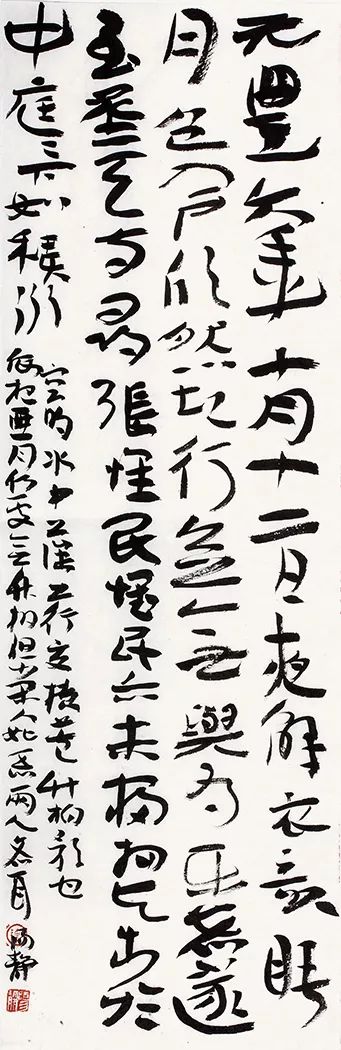 元豐六年十月十二日夜解衣欲睡
月色入户欣然起行念无與为乐者遂
至承天寺尋張懷民懷民亦未寝相与步於
中庭庭下如積水
空明水中藻荇交横蓋竹柏影也
何夜無月何處無竹柏但少閑人如吾兩人者耳
靜